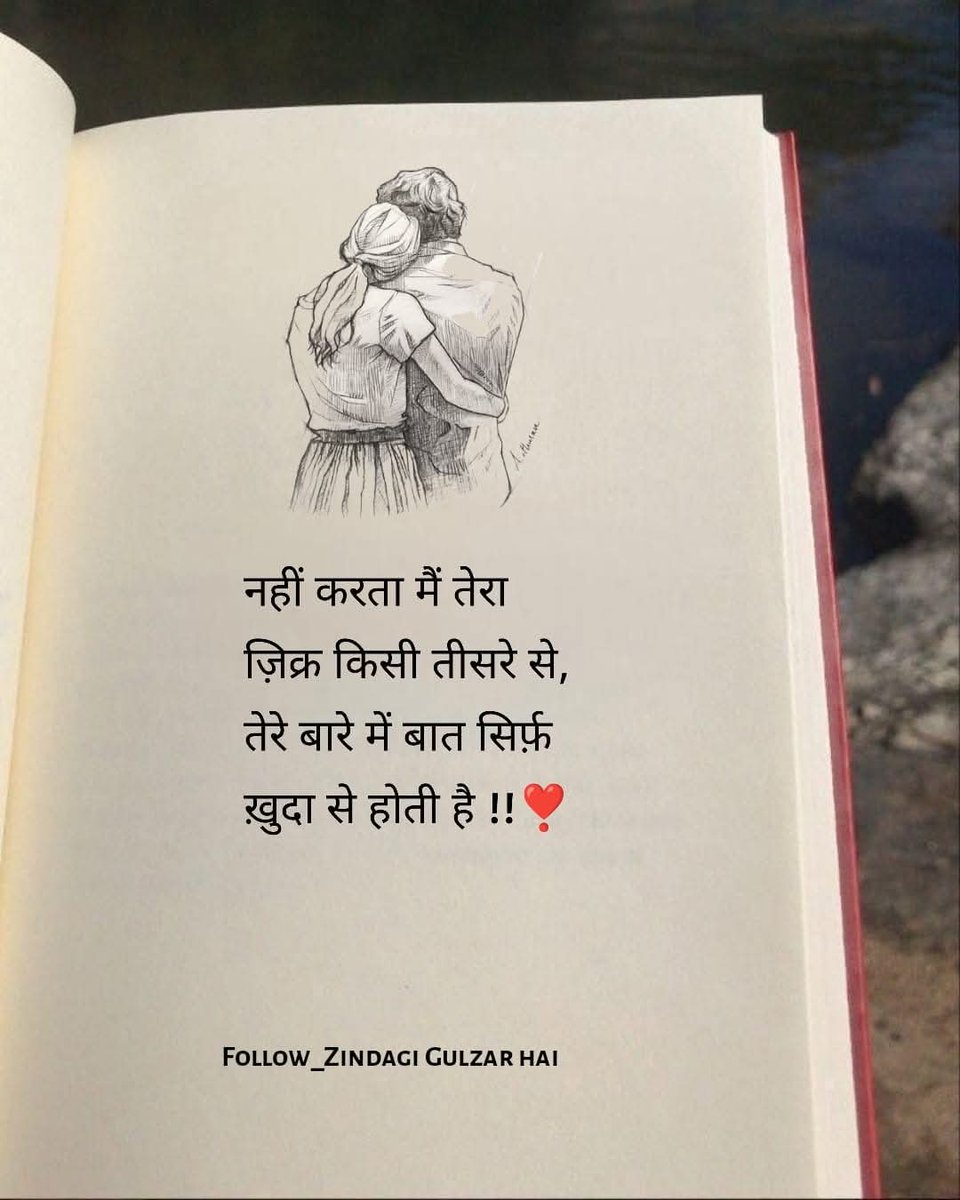 नहीं करता मैं तेरा
ज़िक्र किसी तीसरे से,
तेरे बारे में बात सिर्फ़
ख़ुदा से होती है !!❣️
Follow_Zindagi Gulzar hai